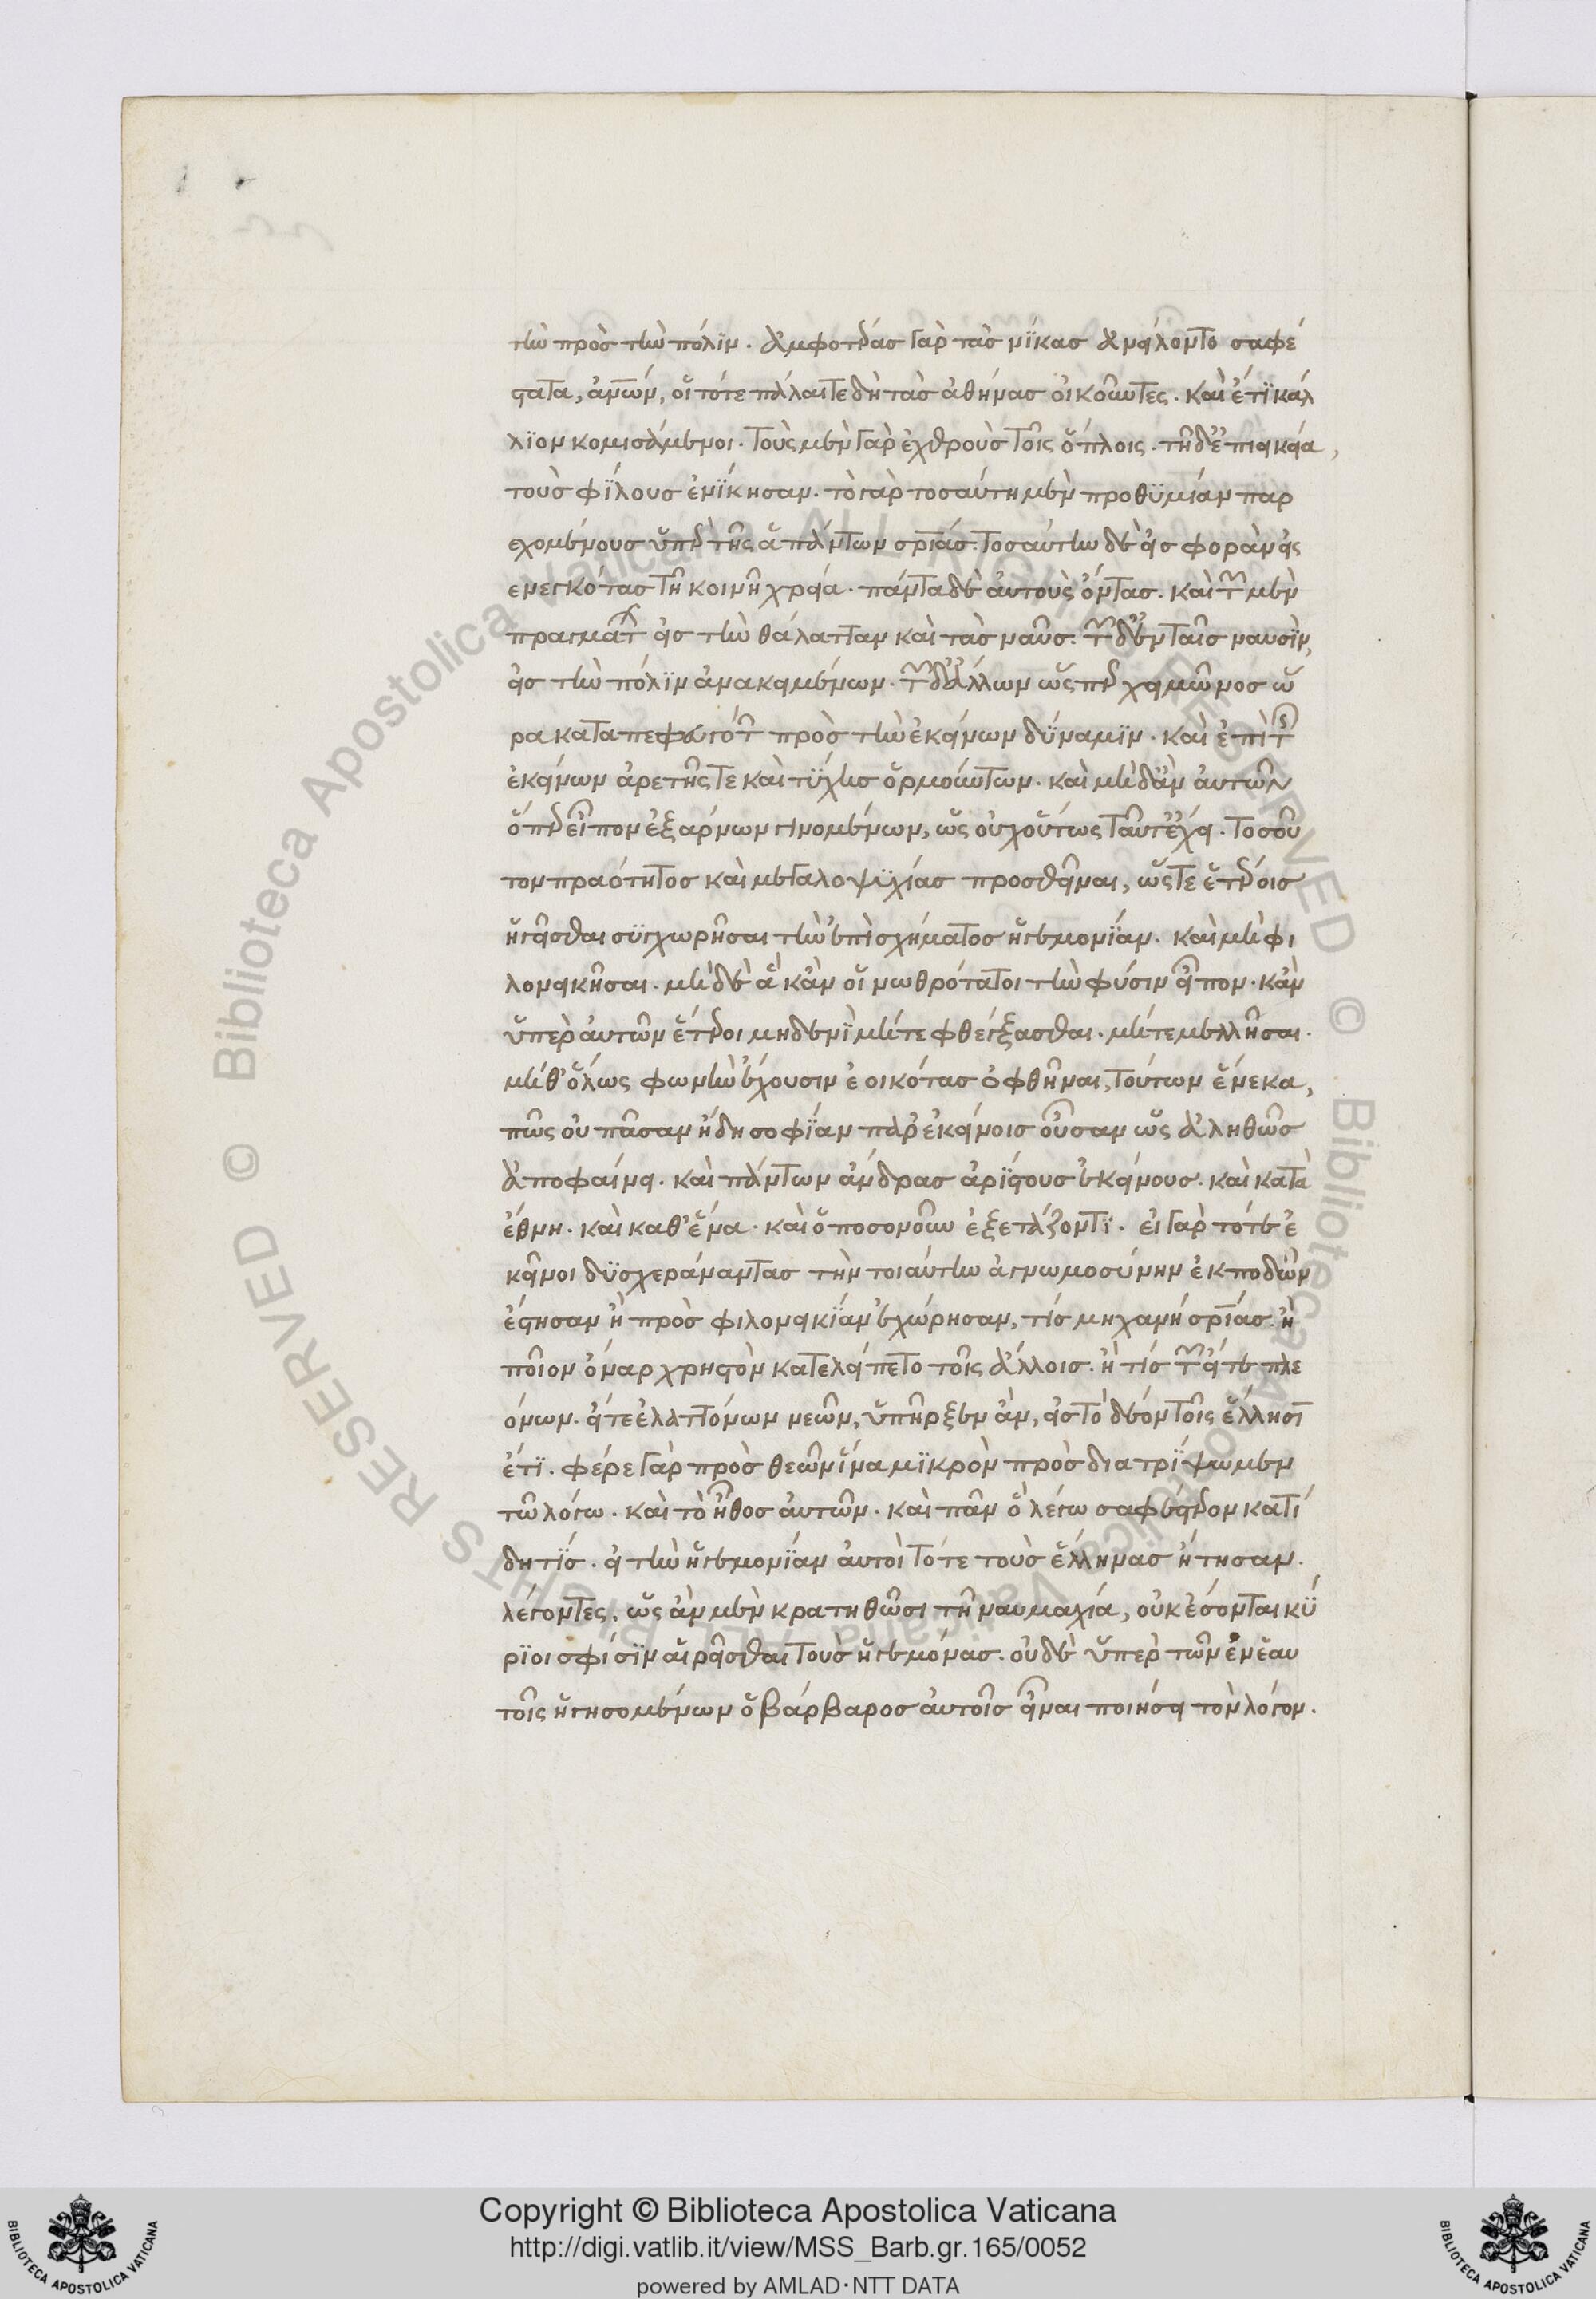 τὴν πρὸς τὴν πόλϊν. ἀμφοτέρας γὰρ τὰς νΐκας ἀνείλοντο σαφέ
στατα, ἀνδρῶν, οἵ τότε πάλαιτε δὴ τὰς ἀθήνας οἰκοῦντες. καὶ ἔτϊ κάλ
λϊον κομισάμενοι. τοὺς μὲν γὰρ ἐχθροὺς τοῖς ὅπλοις. τῆ δ' ἐπιεικεία,
τοὺς φΐλους ἐνΐκησαν. τὸ γὰρ τοσαύτη μὲν προθϋμίαν παρ
εχομένους ὑπὲρ τῆς ἁπάντων σωτηρίας. τοσαύτην δὲ εἰσφορὰν εἰς
ενεγκότας τῆ κοινῆ χρεία. πάντα δὲ ἀυτοὺς ὄντας. καὶ τῶν μὲν
πραγμάτων εἰς τὴν θάλατταν καὶ τὰς ναῦς. τῶν δ' ἐν ταῖς ναυσῒν,
εἰς τὴν πόλϊν ἀνακειμένων. τῶν δ' ἄλλων ὥσπερ χειμῶνος ὥ
ρα καταπεφευγότων πρὸς τὴν ἐκείνων δΰναμϊν. καὶ ἐπὶ τῆς
ἐκείνων ἀρετῆς τε καὶ τΰχης ὁρμούντων. καὶ μηδ' ἂν ἀυτῶν
ὅπερ εἶπον ἐξαρνων γινομένων, ὡς οὐχ οὕτως ταῦτ' ἔχει. τοσοῦ
τον πραότητος καὶ μεγαλοψϋχίας προσθεῖναι, ὥστε ἑτέροις
ἡγεῖσθαι σϋγχωρῆσαι τὴν ἐπὶ σχήματος ἡγεμονΐαν. καὶ μὴ φι
λονεικῆσαι. μηδὲ ἃ κἂν οἱ νωθρότατοι τὴν φύσιν εἶπον. κἂν
ὑπὲρ ἀυτῶν ἕτεροι μηδενῒ μήτε φθέγξασθαι. μήτε μελλῆσαι.
μήθ' ὅλως φωνὴν ἔχουσιν ἐοικότας ὀφθῆναι, τούτων ἕνεκα,
πῶς οὐ πᾶσαν ἤδη σοφΐαν παρ' ἐκείνοις οὖσαν ὡς ἀληθῶς
ἀποφαίνει. καὶ πάντων ἄνδρας ἀρΐστους ἐκείνους. καὶ κατὰ
ἔθνη. καὶ καθ' ἕνα. καὶ ὁποσονοῦν ἐξετάζοντϊ. ἐι γὰρ τότε ἐ
κεῖνοι δϋσχεράναντας τὴν τοιαύτην ἀγνωμοσύνην ἐκποδὼν
ἔστησαν ἢ πρὸς φιλονεικΐαν ἐχώρησαν, τίς μηχανή σωτηρίας. ἢ
ποῖον ὄναρ χρηστὸν κατελείπετο τοῖς ἄλλοις. ἢ τίς τῶν εἴτε πλε
όνων. εἴτε ἐλαττόνων νεῶν, ὑπῆρξεν ἄν, εἰς τὸ δέον τοῖς ἕλλησϊ
ἔτϊ. φέρε γὰρ πρὸς θεῶν ἵνα μϊκρὸν προσδιατρΐψωμεν
τῶ λόγω. καὶ τὸ ἦθος ἀυτῶν. καὶ πᾶν ὃ λέγω σαφέστερον κατί
δη τϊς. εἰ τὴν ἡγεμονΐαν ἀυτοὶ τότε τοὺς ἕλληνας ἤτησαν.
λέγοντες. ὡς ἂν μὲν κρατηθῶσι τῆ ναυμαχία, οὐκ ἔσονται κΰ
ρϊοι σφίσϊν αἱρεῖσθαι τοὺς ἡγεμόνας. οὐδὲ ὑπὲρ τῶν ἐν ἑαυ
τοῖς ἡγησομένων ὁ βάρβαρος ἀυτοῖς εἶναι ποιήσει τὸν λόγον.
BIBLIOTECA APOSTOLICA VATICANA
Copyright © Biblioteca Apostolica Vaticana
http://digi.vatlib.it/view/MSS_Barb.gr.165/0052
powered by AMLAD·NTT DATA
BIBLIOTECA APOSTOLICA VATICANA